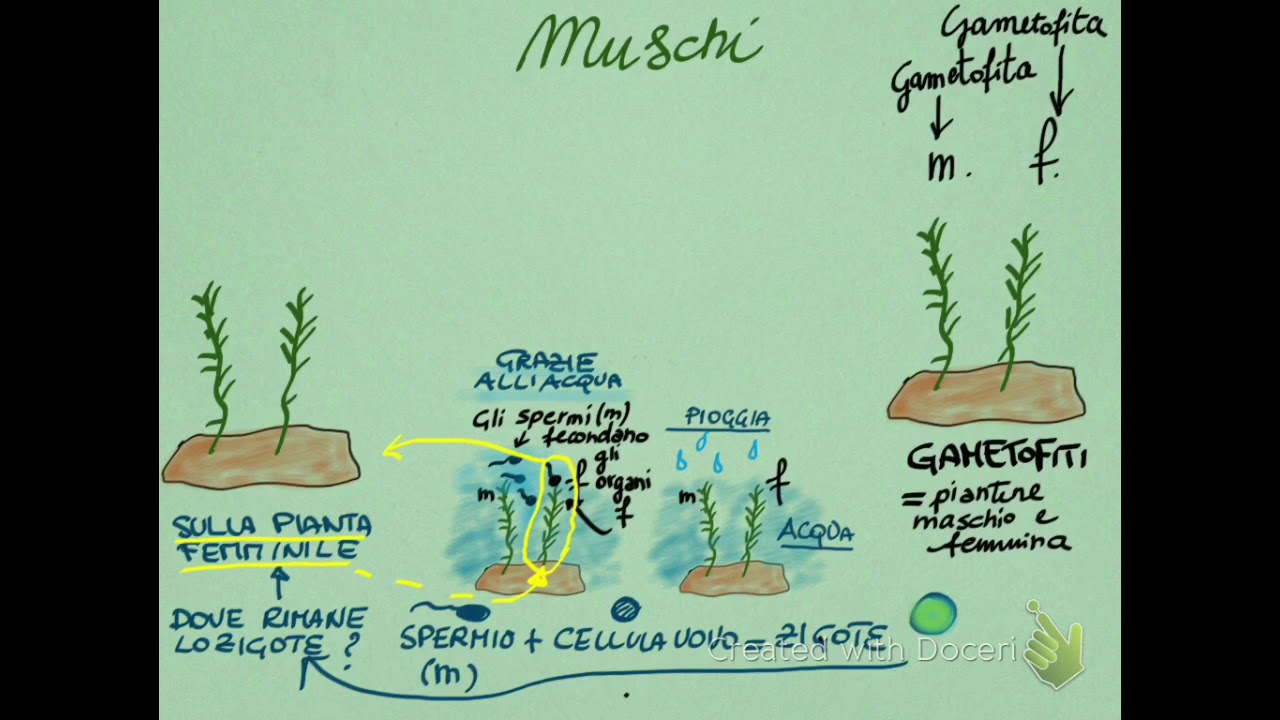 Muschi
Gametofita
Gametofita
m. f.
GRAZIE
ALL'ACQUA
Gli spermi (m)
fecondano
gli
organi
f
m
f
PIOGGIA
m
f
ACQUA
GAMETOFITI
= piantine
maschio e
femmina
SULLA PIANTA
FEMMINILE
DOVE RIMANE
LO ZIGOTE ?
SPERMIO + CELLULA UOVO = ZIGOTE
(m)
Created with Doceri